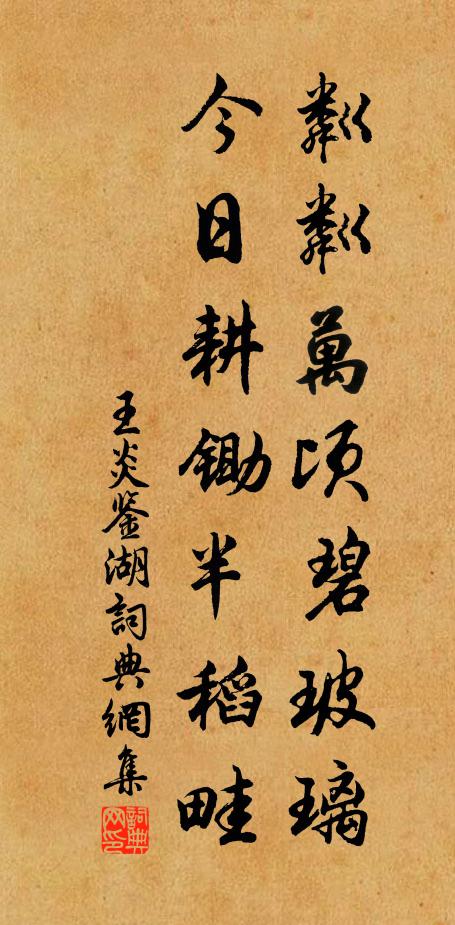 粼粼萬頃碧玻璃
今日耕鋤半稻畦
王炎鉴湖詞典網集
詞典
网印